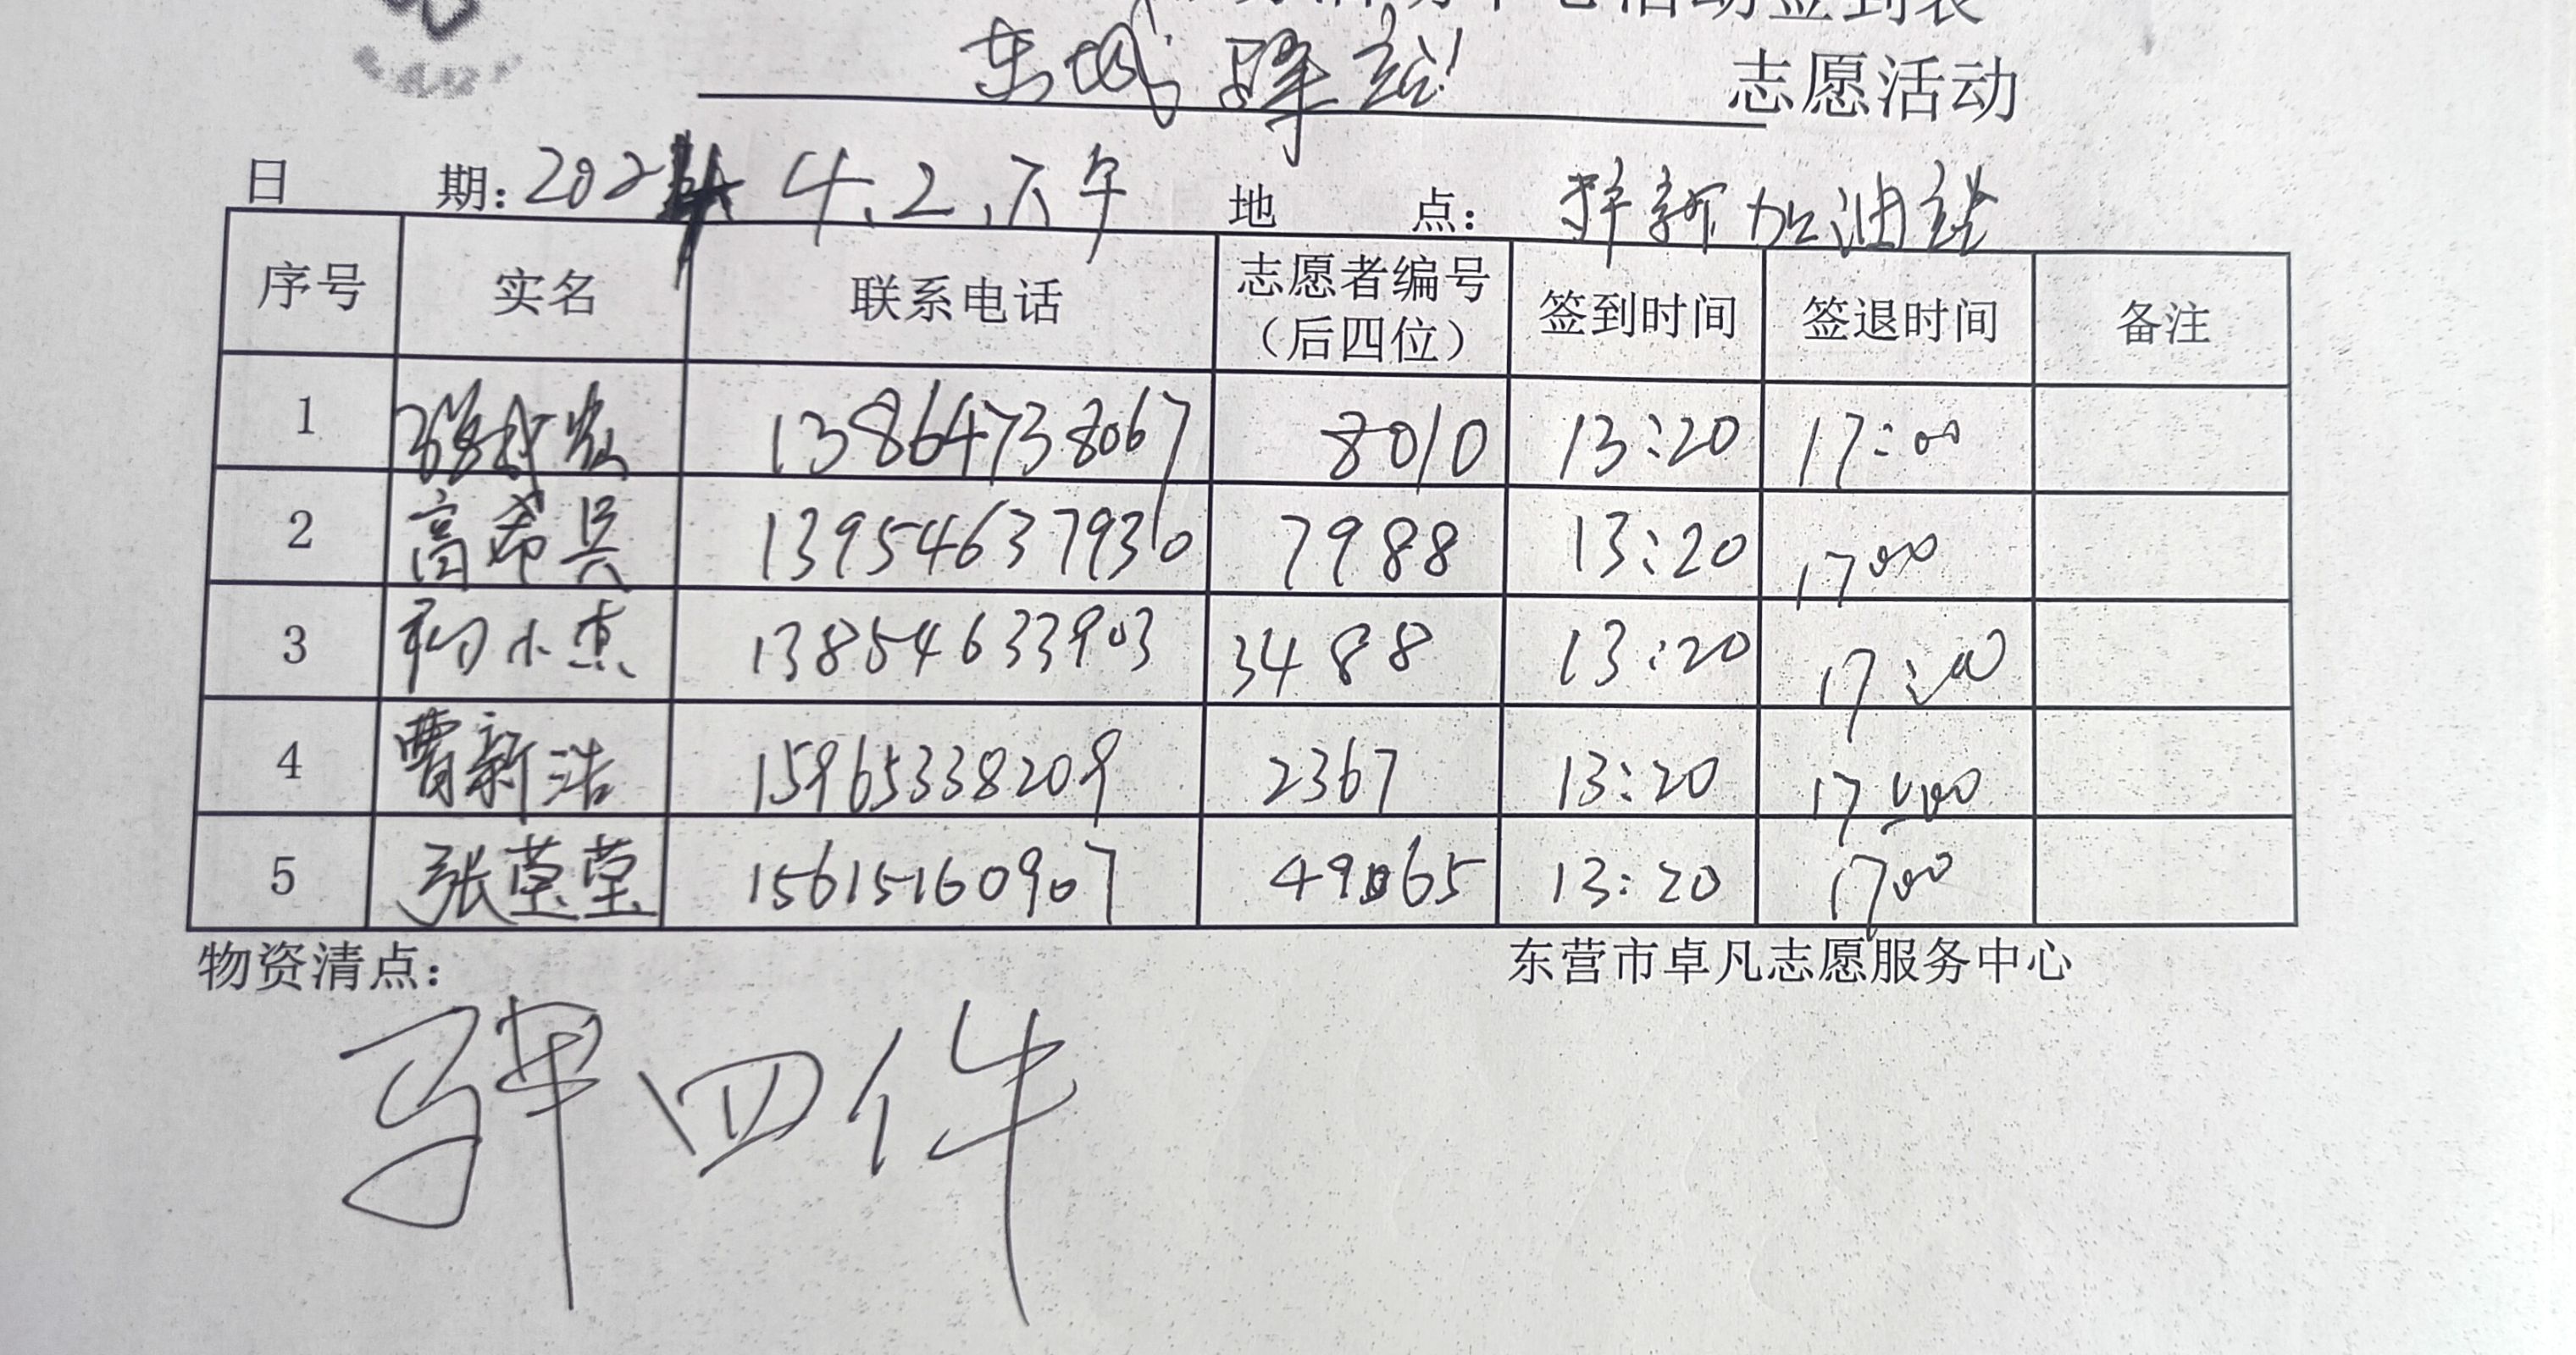 活动签到表
东城驿站 志愿活动
日 期：2024 4.2.下午 地 点： 加油站
序号 实名 联系电话 志愿者编号（后四位） 签到时间 签退时间 备注
1 13864738067 8010 13:20 17:00
2 高希兵 13954637930 7988 13:20 17:00
3 小惠 13854633903 3488 13:20 17:00
4 曹新浩 15965338209 2367 13:20 17:00
5 张莹莹 15615160907 49065 13:20 17:00
物资清点： 东营市卓凡志愿服务中心
四件